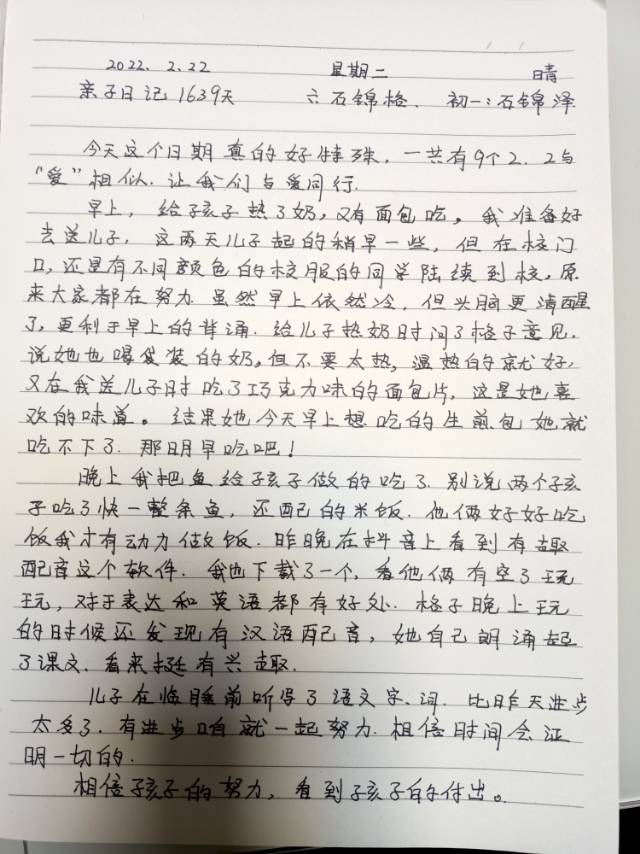 2022. 2.22 星期二 晴
亲子日记1639天 六石锦格. 初一:石锦泽
今天这个日期真的好特殊.一共有9个2. 2与
“爱”相似.让我们与爱同行.
早上,给孩子热了奶,又有面包吃。我准备好
去送儿子,这两天儿子起的稍早一些,但在校门
口,还是有不同颜色的校服的同学陆续到校,原
来大家都在努力.虽然早上依然冷,但头脑更清醒
了,更利于早上的背诵.给儿子热奶时问了格子意见.
说她也喝袋装的奶,但不要太热,温热的就好,
又在我送儿子时吃了巧克力味的面包片,这是她喜
欢的味道。结果她今天早上想吃的生煎包她就
吃不下了.那明早吃吧!
晚上我把鱼给孩子做的吃了.别说两个孩
子吃了快一整条鱼,还配的米饭.他俩好好吃
饭我才有动力做饭.昨晚在抖音上看到有趣
配音这个软件.我也下载了一个,看他俩有空了玩
玩,对于表达和英语都有好处.格子晚上玩
的时候还发现有汉语配音,她自己朗诵起
了课文.看来挺有兴趣.
儿子在临睡前听写了语文字、词.比昨天进步
太多了.有进步咱就一起努力.相信时间会证
明一切的.
相信孩子的努力,看到孩子的付出。